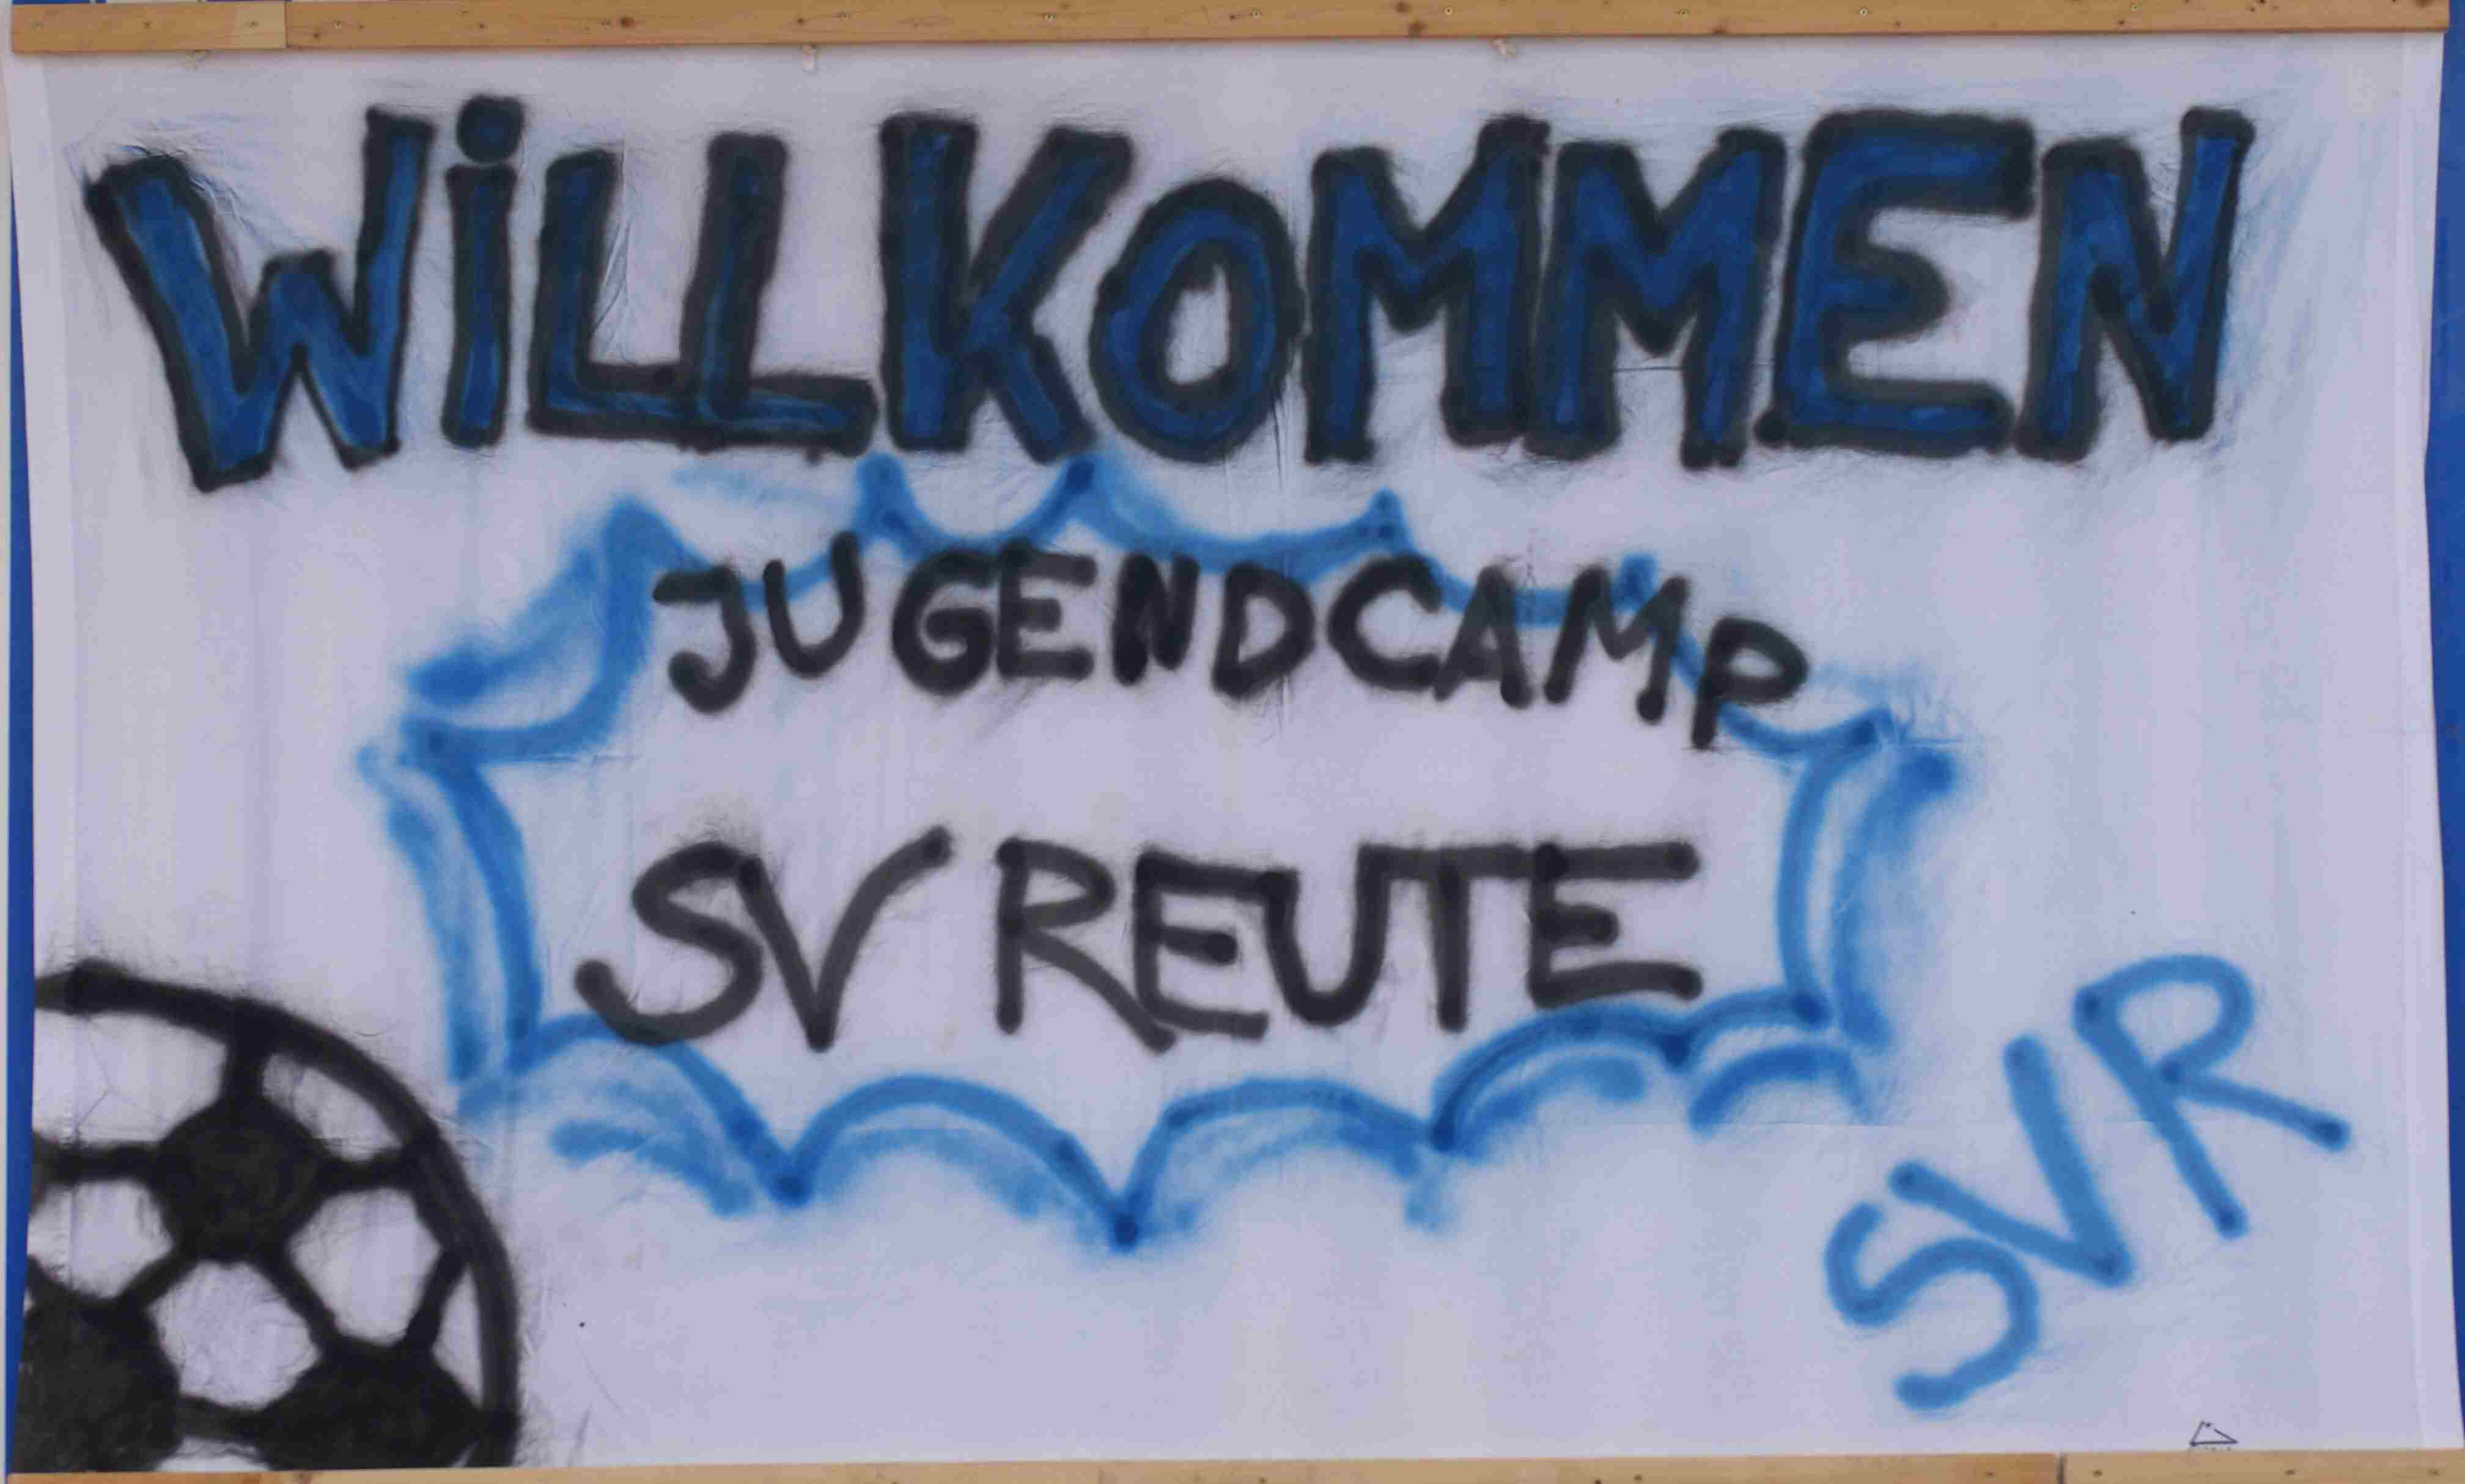 WiLLKOMMEN
JUGENDCAMP
SV REUTE
SVR